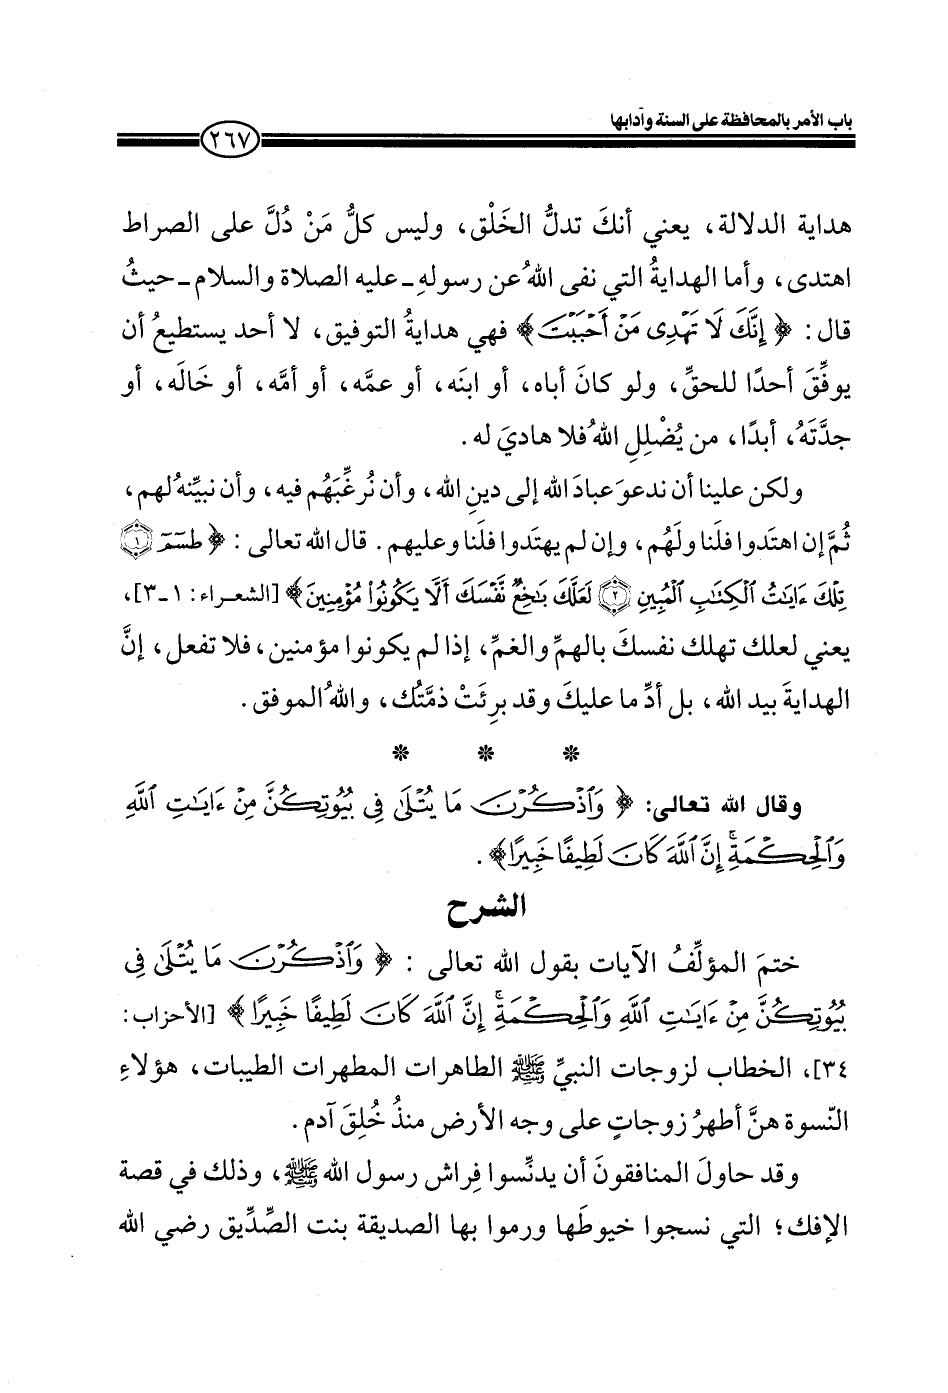 باب الأمر بالمحافظة على السنة وآدابها
٢٦٧
هداية الدلالة، يعني أنكَ تدلُّ الخَلْق، وليس كلُّ مَنْ دُلَّ على الصراط
اهتدى، وأما الهدايةُ التي نفى اللهُ عن رسولهِ ـ عليه الصلاة والسلام ـ حيثُ
قال: ﴿ إِنَّكَ لَا تَهْدِى مَنْ أَحْبَبْتَ ﴾ فهي هدايةُ التوفيق، لا أحد يستطيعُ أن
يوفِّقَ أحدًا للحقِّ، ولو كانَ أباه، أو ابنَه، أو عمَّه، أو أمَّه، أو خَالَه، أو
جدَّتَهُ، أبدًا، من يُضْلِلِ اللهُ فلا هاديَ له.
ولكن علينا أن ندعوَ عبادَ الله إلى دينِ الله، وأن نُرغِّبَهُم فيه، وأن نبيِّنه لهم،
ثُمَّ إن اهتَدوا فلَنا ولَهُم، وإن لم يهتَدوا فلَنا وعليهم. قال الله تعالى: ﴿ طسٓمٓ ١
تِلْكَ ءَايَٰتُ ٱلْكِتَٰبِ ٱلْمُبِينِ ٢ لَعَلَّكَ بَٰخِعٌ نَّفْسَكَ أَلَّا يَكُونُوا۟ مُؤْمِنِينَ ﴾ [الشعراء: ١-٣]،
يعني لعلك تهلك نفسكَ بالهمِّ والغمِّ، إذا لم يكونوا مؤمنين، فلا تفعل، إنَّ
الهدايةَ بيد الله، بل أدِّ ما عليكَ وقد برِئَتْ ذمَّتُك، واللهُ الموفق.
* * *
وقال الله تعالى: ﴿ وَٱذْكُرْنَ مَا يُتْلَىٰ فِى بُيُوتِكُنَّ مِنْ ءَايَٰتِ ٱللَّهِ
وَٱلْحِكْمَةِ ۚ إِنَّ ٱللَّهَ كَانَ لَطِيفًا خَبِيرًا ﴾.
الشرح
ختمَ المؤلِّفُ الآيات بقول الله تعالى: ﴿ وَٱذْكُرْنَ مَا يُتْلَىٰ فِى
بُيُوتِكُنَّ مِنْ ءَايَٰتِ ٱللَّهِ وَٱلْحِكْمَةِ ۚ إِنَّ ٱللَّهَ كَانَ لَطِيفًا خَبِيرًا ﴾ [الأحزاب:
٣٤]، الخطاب لزوجات النبيِّ ﷺ الطاهرات المطهرات الطيبات، هؤلاءِ
النّسوة هنَّ أطهرُ زوجاتٍ على وجه الأرض منذُ خُلِقَ آدم.
وقد حاولَ المنافقونَ أن يدنِّسوا فِراش رسول الله ﷺ، وذلك في قصة
الإفك؛ التي نسجوا خيوطَها ورموا بها الصديقة بنت الصِّدِّيق رضي الله